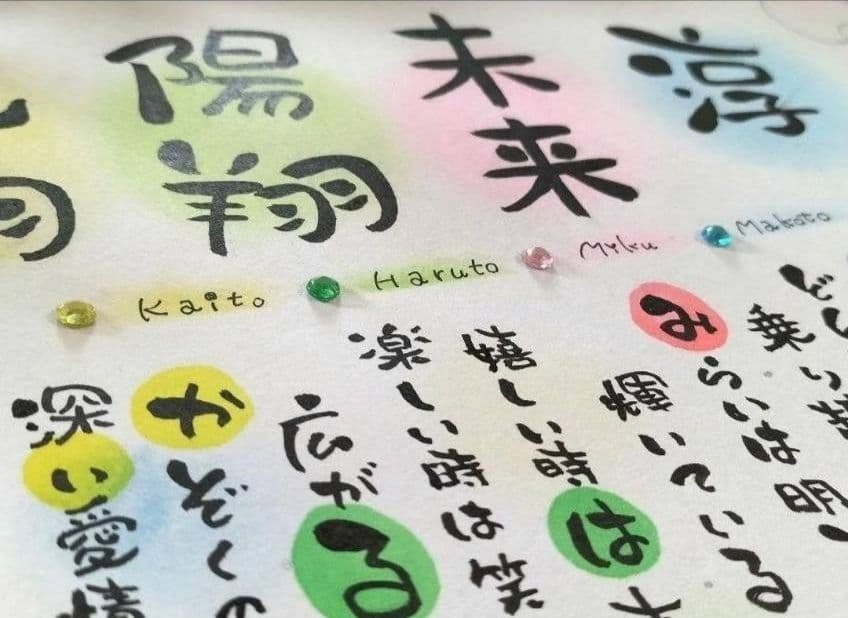 陽翔
未来
Kaito
Haruto
Miku
Makoto
乗り
みらいは明
輝いている
嬉しい時は
楽しい時は笑
広がる
かぞくの
深い愛情